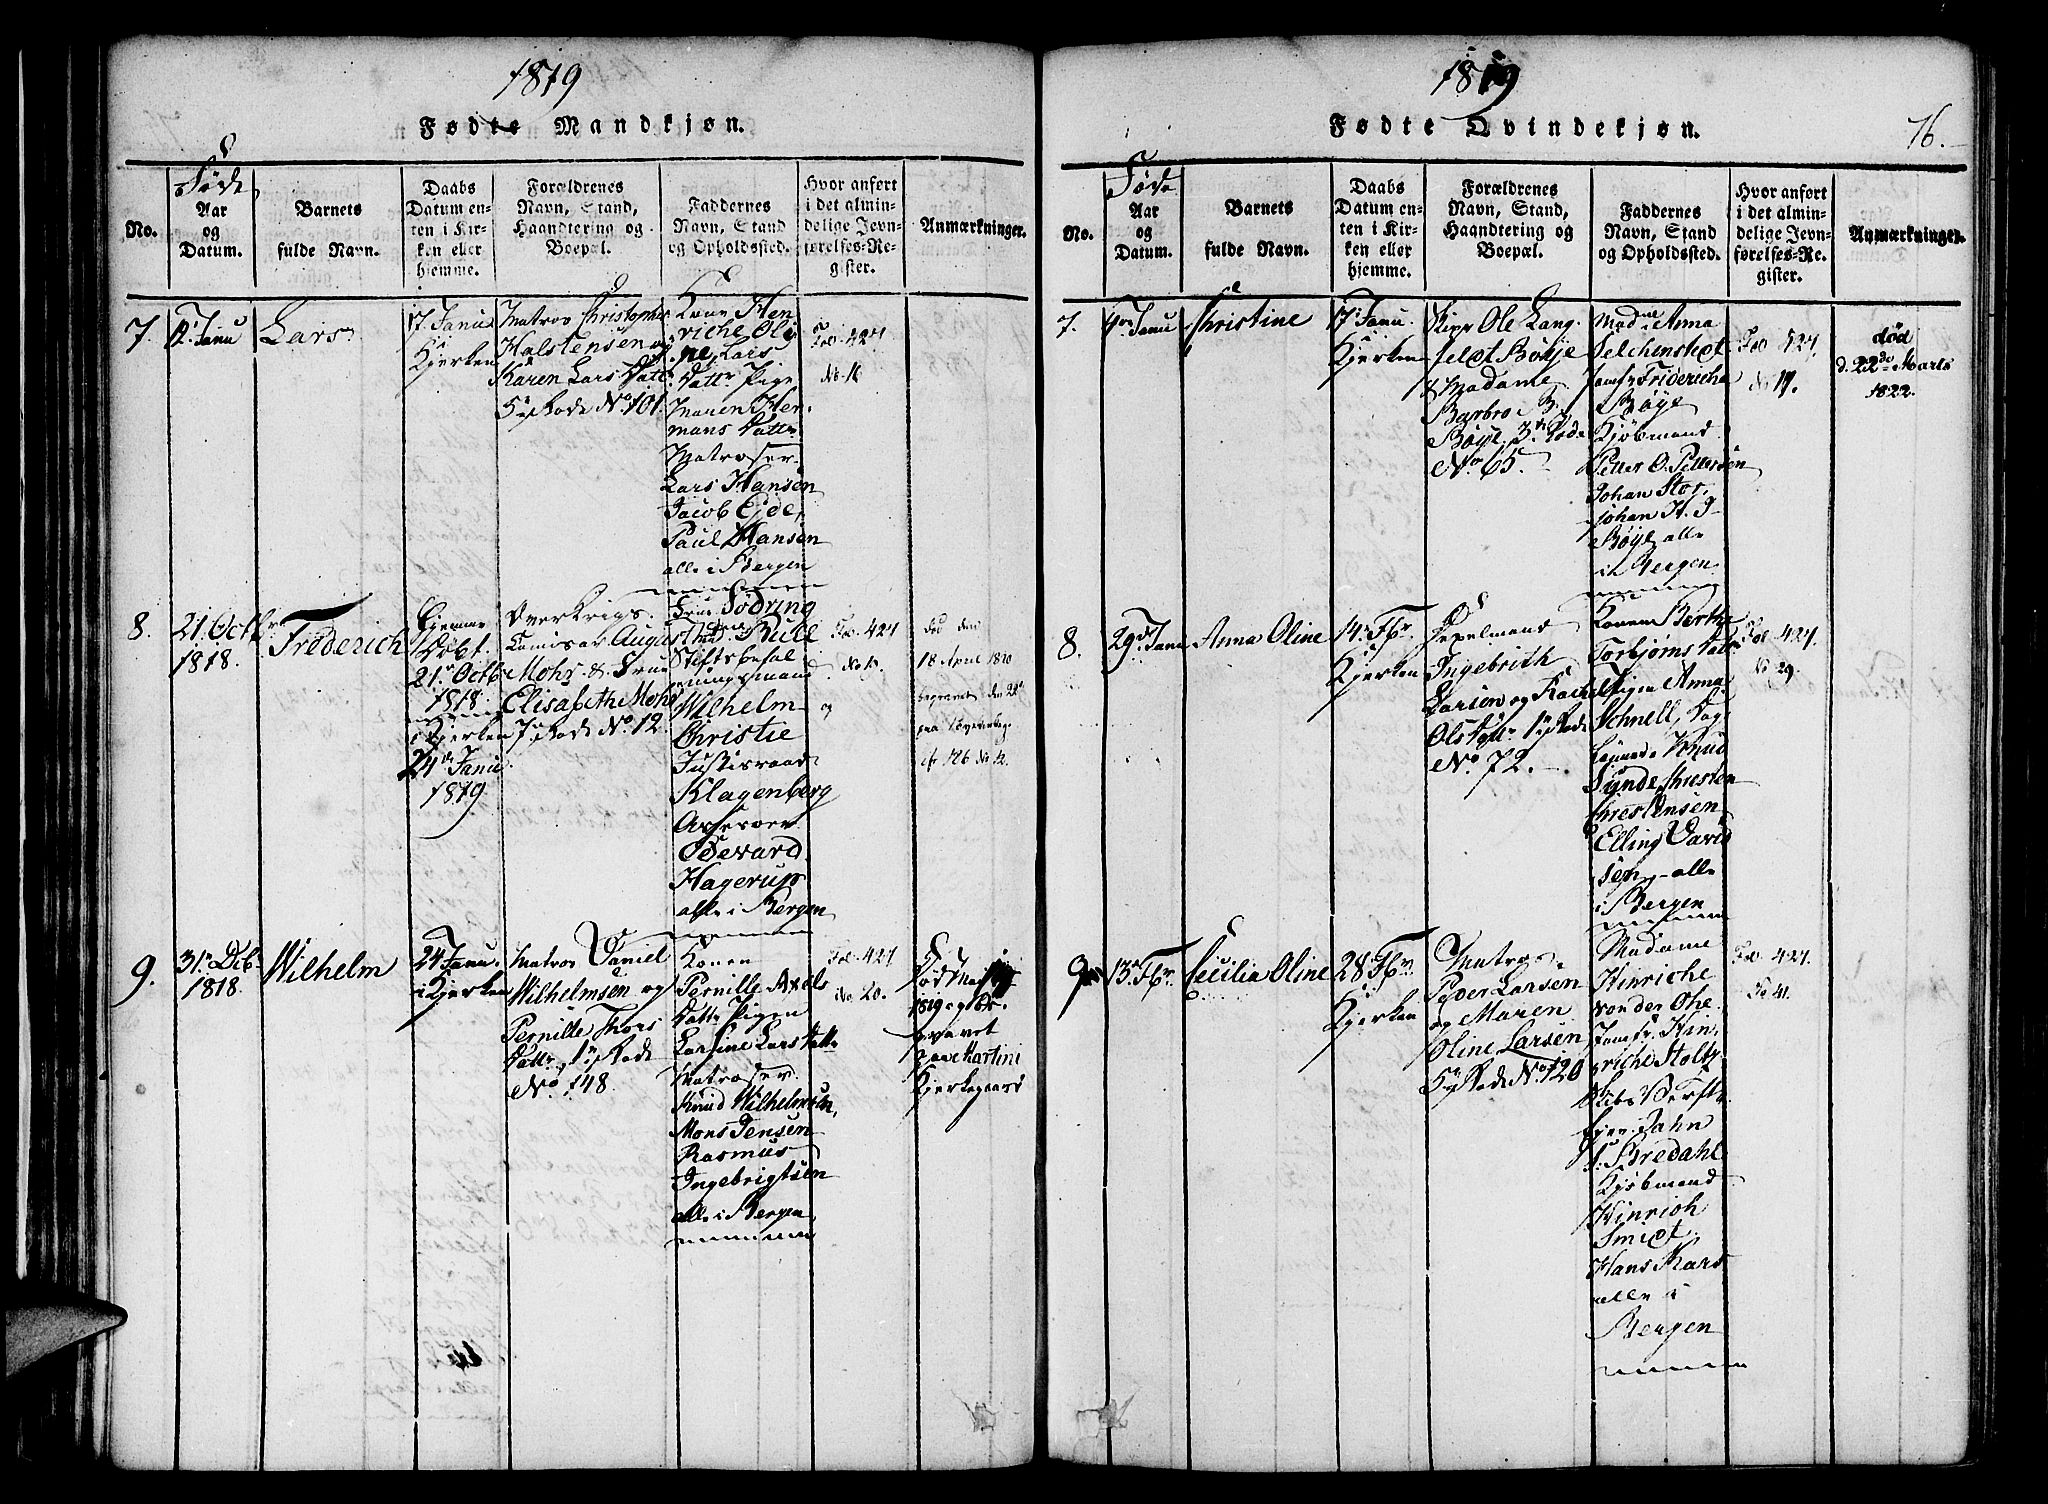 1819
Fødte Mandkjøn.
No.
Føde
Aar
og
Datum.
Barnets
fulde Navn.
Daabs
Datum en-
ten i Kir-
ken eller
hjemme.
Forældrenes
Navn, Stand,
Haandtering og
Boepæl.
Faddernes
Navn, Stand
og Opholdssted.
Hvor anført
i det almin-
delige Jevn-
førelses-Re-
gister.
Anmærkninger.
7.
12. Janu
Lars
17 Janu
Kjerken
Matros Christopher
Halstensen og
Karen Lars Datt
5te Rode No. 101.
Kone Hen
riche Oli
ne Lars
Datter Pige
Maren Her
mans Datter
Matroser
Lars Hansen
Jacob Eide,
Paul Hansen
alle i Bergen
Fol. 427
No. 16
8.
21. Octbr
1818.
Frederich
Hjemme
Døbt
21. Octb
1818
i Kjerken
24de Janu
1819
Over Krigs
Comisær August
Mohr & Frue
Elisabethe Mohr
7de Rode No. 12.
Frue Södring
Mad. Bull
Stiftsbefal
ningsmand
Wilhelm
Christie
Justisraad
Klagenberg
Assessor
Edevard
Hagerup
alle i Bergen
Fol. 427
No. 19.
og
død den
18 April 1820
begravet den 22de
9.
31. Dcb.
1818.
Wilhelm
24 Janu.
i Kjerken
Matros Daniel
Wilhelmsen og
Pernille Thors
Datter, 1te Rode
No. 148.
Konen
Pernille Axels
Datter Pigen
Larsine Lars Datter
Matroser
Knud Wilhelmsen,
Mons Jensen
Rasmus
Ingebrigtsen
alle i Bergen
Fol. 427
No. 20.
Død
1819 og
paa Martini
Kjerkegaard
1819
Fødte Qvindekjøn.
76.
No.
Føde
Aar
og
Datum.
Barnets
fulde Navn.
Daabs
Datum en-
ten i Kir-
ken eller
hjemme.
Forældrenes
Navn, Stand,
Haandtering og
Boepæl.
Faddernes
Navn, Stand
og Opholdssted.
Hvor anført
i det almin-
delige Jevn-
førelses-Re-
gister.
Anmærkninger.
7.
Janu
Christine
17 Janu.
Kjerken
Skipr Ole Lang
feldt Böye
& Madame
Barbro B.
Böye. 3de Rode
No. 65.
Mad. Anna
Jomfr Fridericha
Böye
Kjöbmand
Petter O. Pettersen
Johan Stor,
Johan H. I
Böye, alle
i Bergen
Fol. 427.
No. 11.
død
d. 22de Marts
1822.
8.
29. Janu
Anna Oline
14. Fbr
Kjerken
Ingebrith
Larsen og
Ols Datter 1te Rode
No. 72.
Konen Berthe
Torbjørns Datter
Pigen Anna
Schnell, Dag
Knud
Sunde Christen
Christensen
Elling David
sen, alle
i Bergen
Fol. 427.
No. 29.
9.
13. Fbr.
Cecilia Oline
28 Fbr
Kjerken
Matros
Peder Larsen
og Maren
Oline Larsen,
5te Rode No. 120
Madame
Hinriche
von der Ohe
Jomfr. Hin
riche Stoltz
Jahn
S. Bredahl
Kjöbmand
Hinrich
Smidt,
Hans Kars
alle i
Bergen
Fol. 427.
No. 41.